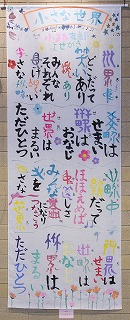 小さな世界
世界中
どこだって
笑いあり
涙あり
みんな
それぞれ
助け合う
小さな世界
世界は
せまい
世界は
おなじ
世界は
まるい
ただひとつ
世界中
だれだって
ほほえめば
なかよしさ
みんな
輪になり
手を
つなごう
小さな世界
世界は
せまい
世界は
おなじ
世界は
まるい
ただひとつ